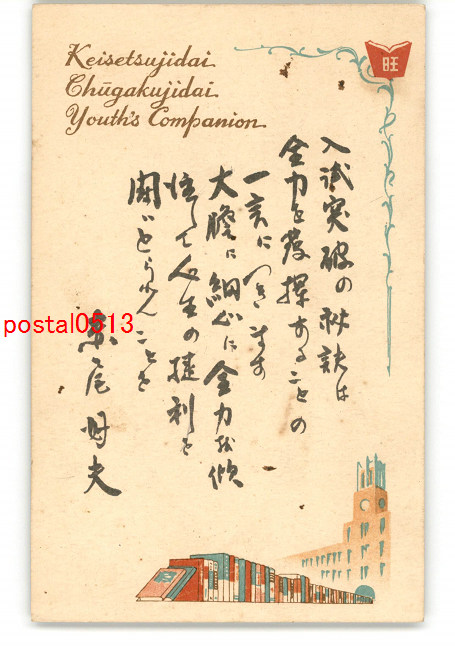 Keisetsujidai
Chūgakujidai
Youth's Companion
旺
入試突破の秘訣は
全力を発揮することの
一言につきます
大膽に細心に全力を傾
悟して人生の勝利を
聞いとられんことを
尾 夫
postal0513